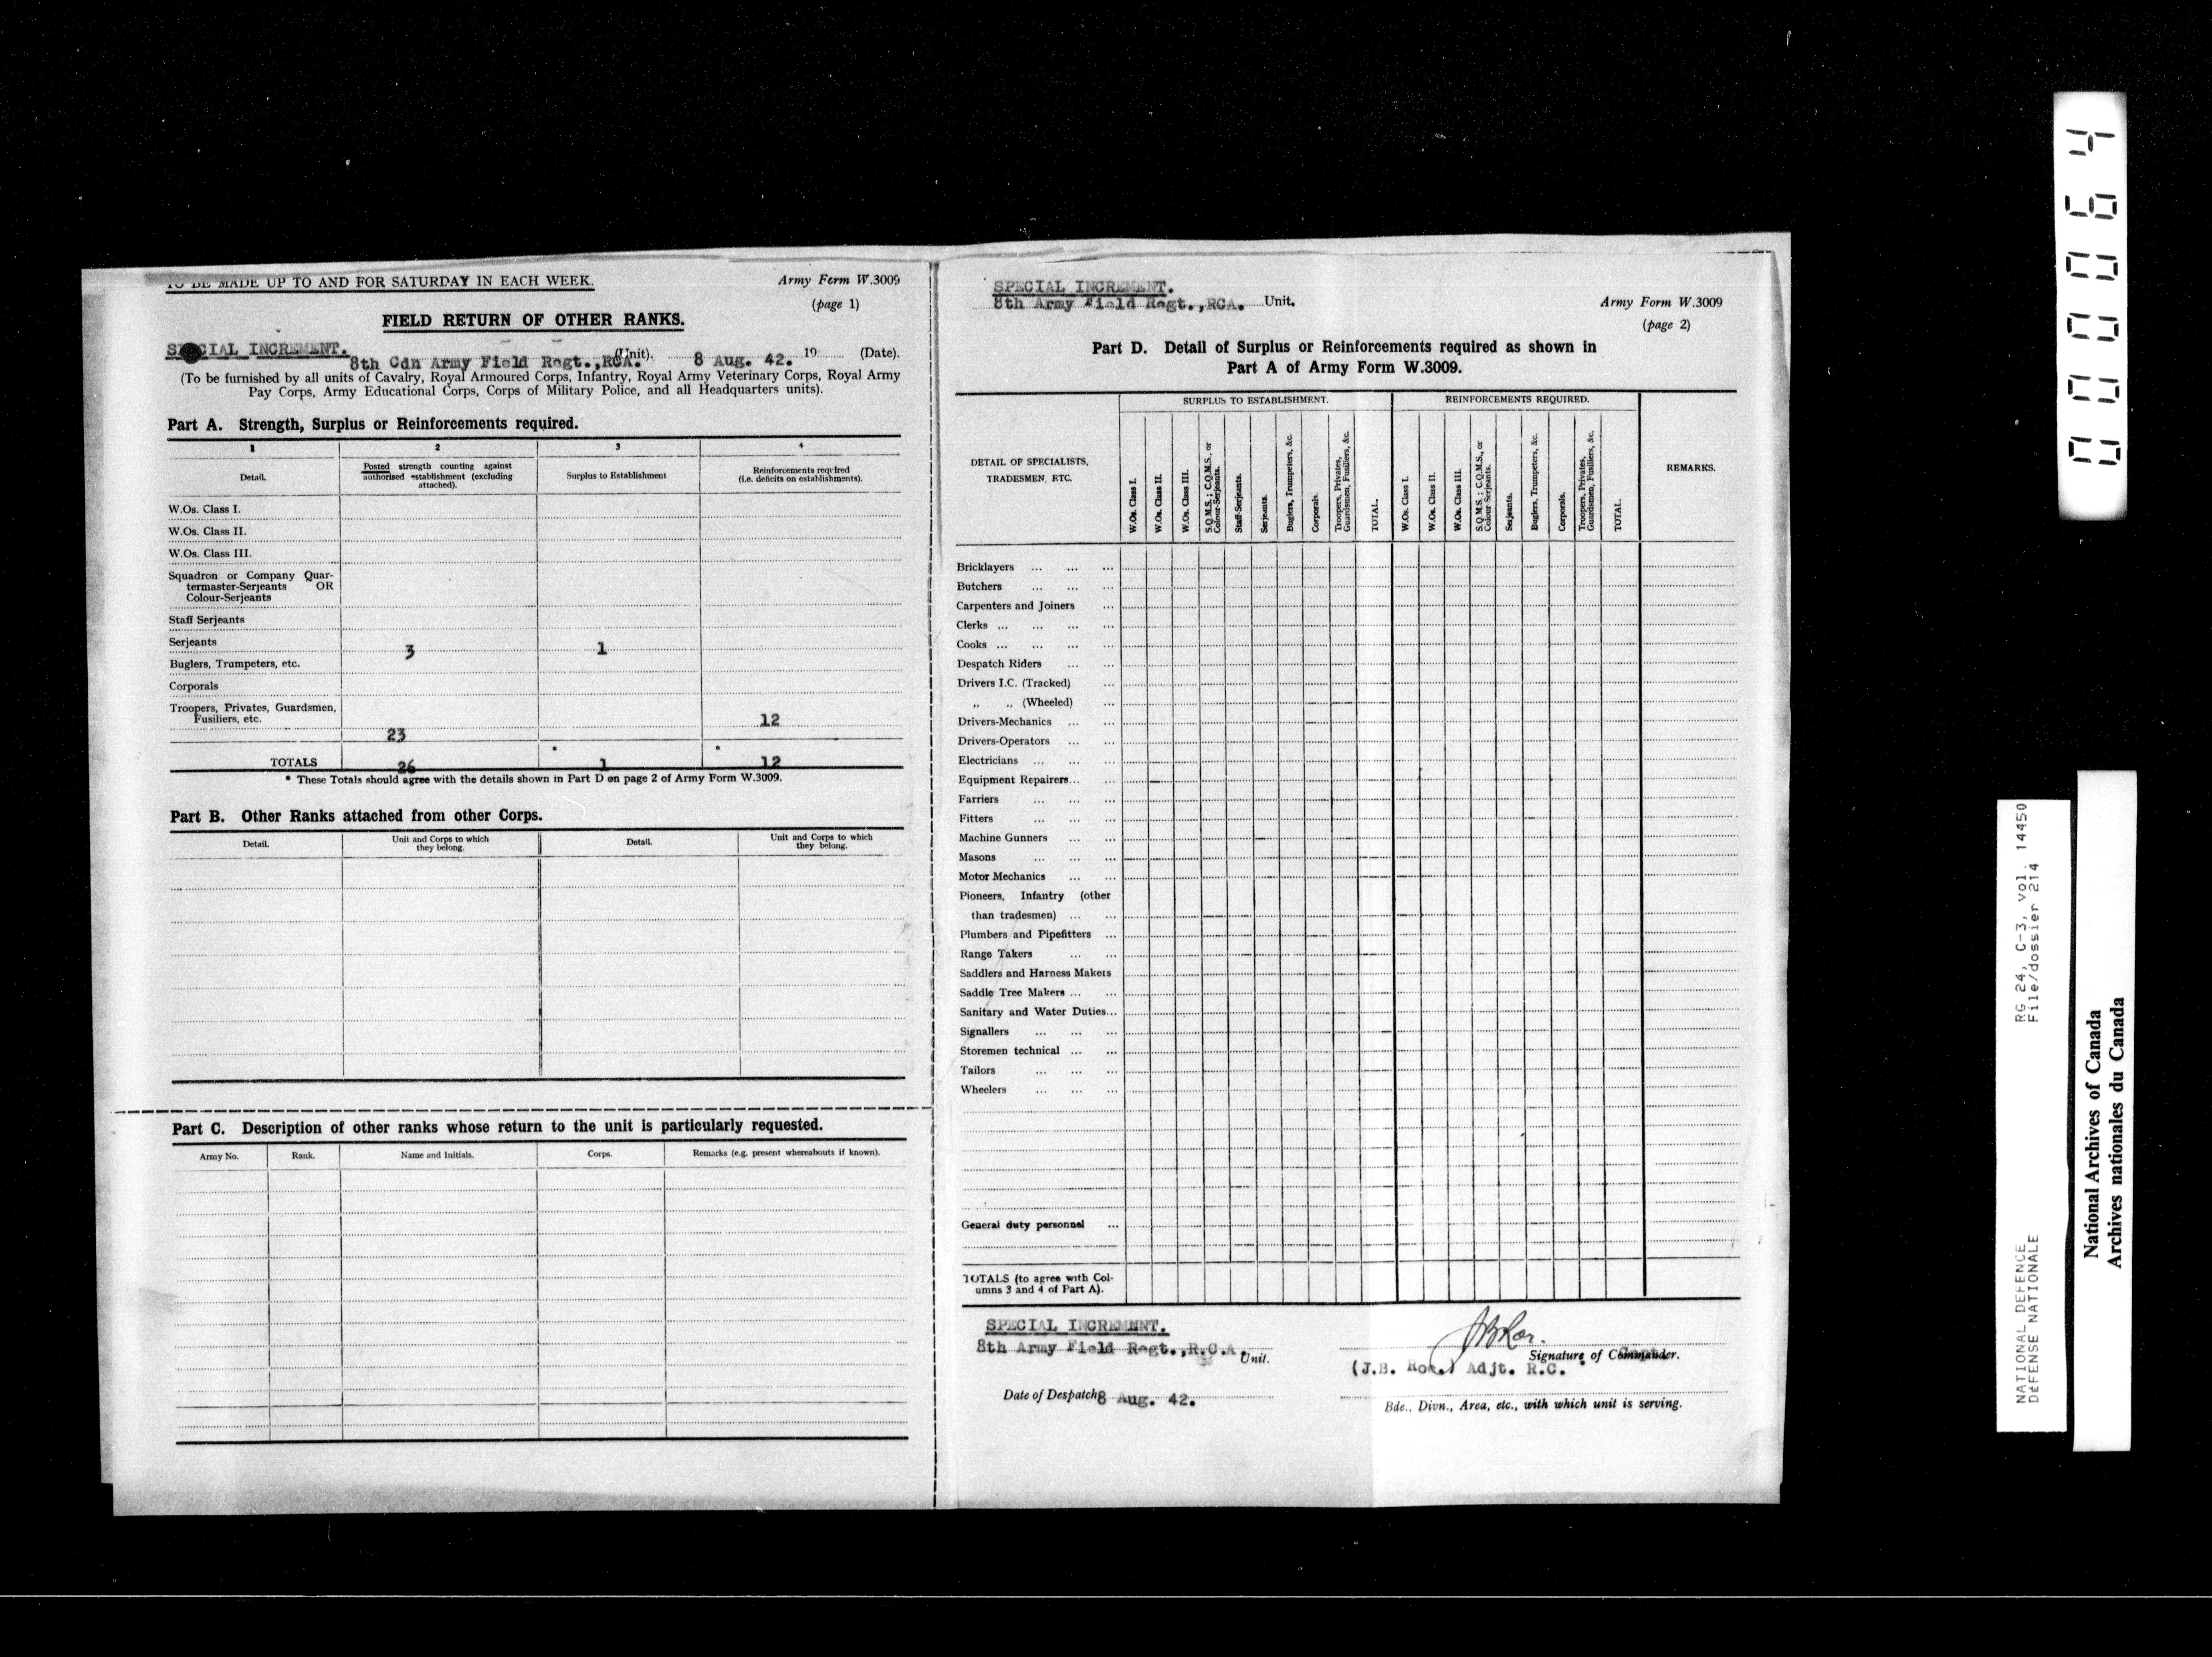 TO BE MADE UP TO AND FOR SATURDAY IN EACH WEEK.
Army Form W.3009
(page 1)
FIELD RETURN OF OTHER RANKS.
SPECIAL INCREMENT.
8th Cdn Army Field Regt.,RCA. (Unit). 8 Aug. 42. 19 (Date).
(To be furnished by all units of Cavalry, Royal Armoured Corps, Infantry, Royal Army Veterinary Corps, Royal Army
Pay Corps, Army Educational Corps, Corps of Military Police, and all Headquarters units).
Part A. Strength, Surplus or Reinforcements required.
1 2 3 4
Detail.
Posted strength counting against
authorised establishment (excluding
attached).
Surplus to Establishment
Reinforcements required
(i.e. deficits on establishments).
W.Os. Class I.
W.Os. Class II.
W.Os. Class III.
Squadron or Company Quar-
termaster-Serjeants OR
Colour-Serjeants
Staff Serjeants
Serjeants 3 1
Buglers, Trumpeters, etc.
Corporals
Troopers, Privates, Guardsmen,
Fusiliers, etc. 23 12
TOTALS 26 * 1 * 12
* These Totals should agree with the details shown in Part D on page 2 of Army Form W.3009.
Part B. Other Ranks attached from other Corps.
Detail.
Unit and Corps to which
they belong.
Detail.
Unit and Corps to which
they belong.
Part C. Description of other ranks whose return to the unit is particularly requested.
Army No. Rank. Name and Initials. Corps. Remarks (e.g. present whereabouts if known).
SPECIAL INCREMENT.
8th Army Field Regt.,RCA. Unit.
Army Form W.3009
(page 2)
Part D. Detail of Surplus or Reinforcements required as shown in
Part A of Army Form W.3009.
DETAIL OF SPECIALISTS,
TRADESMEN, ETC.
SURPLUS TO ESTABLISHMENT.
W.Os. Class I.
W.Os. Class II.
W.Os. Class III.
S.Q.M.S.; C.Q.M.S. or
Colour-Serjeants.
Staff-Serjeants.
Serjeants.
Buglers, Trumpeters, &c.
Corporals.
Troopers, Privates,
Guardsmen, Fusiliers, &c.
TOTAL.
REINFORCEMENTS REQUIRED.
W.Os. Class I.
W.Os. Class II.
W.Os. Class III.
S.Q.M.S.; C.Q.M.S., or
Colour-Serjeants.
Serjeants.
Buglers, Trumpeters, &c.
Corporals.
Troopers, Privates,
Guardsmen, Fusiliers, &c.
TOTAL.
REMARKS.
Bricklayers
Butchers
Carpenters and Joiners
Clerks
Cooks
Despatch Riders
Drivers I.C. (Tracked)
,, ,, (Wheeled)
Drivers-Mechanics
Drivers-Operators
Electricians
Equipment Repairers
Farriers
Fitters
Machine Gunners
Masons
Motor Mechanics
Pioneers, Infantry (other
than tradesmen)
Plumbers and Pipefitters
Range Takers
Saddlers and Harness Makers
Saddle Tree Makers
Sanitary and Water Duties
Signallers
Storemen technical
Tailors
Wheelers
General duty personnel
TOTALS (to agree with Col-
umns 3 and 4 of Part A).
SPECIAL INCREMNNT.
8th Army Field Regt.,R.C.A. Unit.
Date of Despatch 8 Aug. 42.
Signature of Commander.
(J.B. Roe.) Adjt. R.C.
Bde., Divn., Area, etc., with which unit is serving.
000064
RG 24, C-3, vol. 14450
File/dossier 214
NATIONAL DEFENCE
DÉFENSE NATIONALE
National Archives of Canada
Archives nationales du Canada